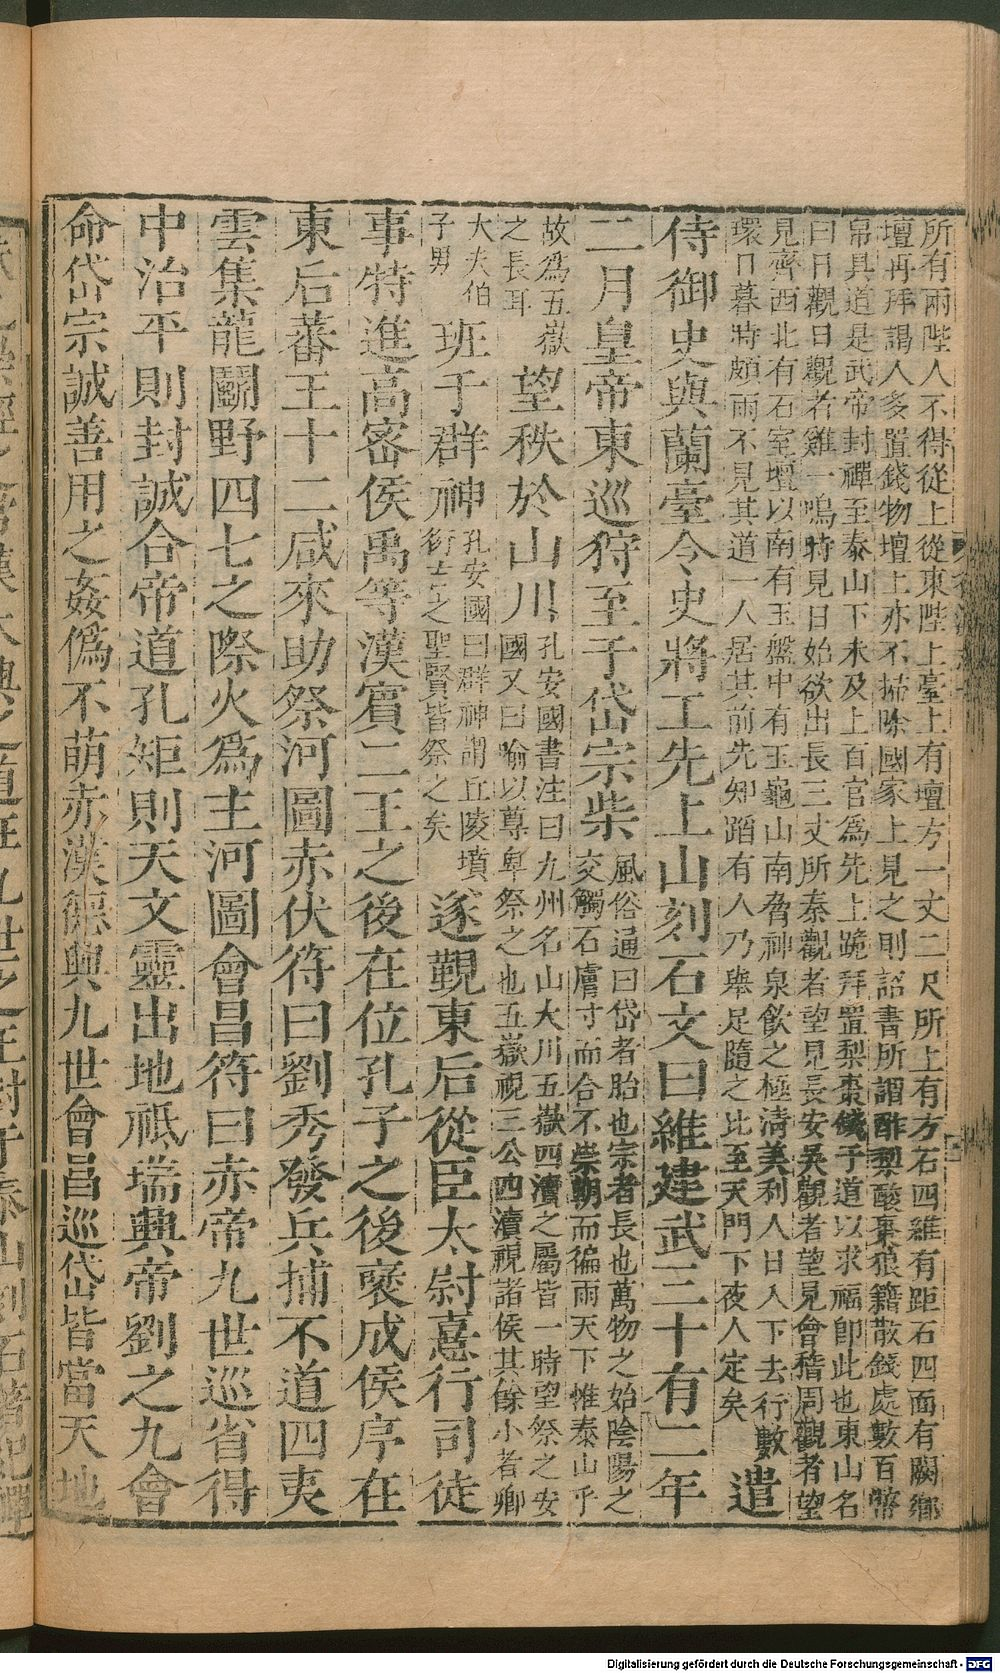 所有兩陛人不得從上從東陛上臺上有壇方一丈二尺所上有方石四維有距石四面有闕鄉
壇再拜謁人多置錢物壇上亦不掃除國家上見之則詔書所謂酢梨酸棗狼籍散錢處數百幣
帛具道是武帝封禪至泰山下未及上百官為先上跪拜置梨棗錢于道以求福卽此也東山名
曰日觀日觀者雞一鳴時見日始欲出長三丈所秦觀者望見長安吳觀者望見會稽周觀者望
見齊西北有石室壇以南有玉盤中有玉龜山南脅神泉飲之極淸美利人日入下去行數
環日暮時頗雨不見其道一人居其前先知蹈有人乃舉足隨之比至天門下夜人定矣
遣
侍御史與蘭臺令史將工先上山刻石文曰維建武三十有二年
二月皇帝東巡狩至于岱宗柴
風俗通曰岱者胎也宗者長也萬物之始陰陽之
交觸石膚寸而合不崇朝而徧雨天下惟泰山乎
故為五嶽
之長耳
望秩於山川
孔安國書注曰九州名山大川五嶽四瀆之屬皆一時望祭之安
國又曰喻以尊卑祭之也五嶽視三公四瀆視諸侯其餘小者卿
大夫伯
子男
班于群神
孔安國曰群神謂丘陵墳
衍古之聖賢皆祭之矣
遂覲東后從臣太尉憙行司徒
事特進高密侯禹等漢賓二王之後在位孔子之後襃成侯序在
東后蕃王十二咸來助祭河圖赤伏符曰劉秀發兵捕不道四夷
雲集龍鬭野四七之際火爲主河圖會昌符曰赤帝九世巡省得
中治平則封誠合帝道孔矩則天文靈出地祇瑞興帝劉之九會
命岱宗誠善用之姦僞不萌赤漢德興九世會昌巡岱皆當天地
Digitalisierung gefördert durch die Deutsche Forschungsgemeinschaft - DFG